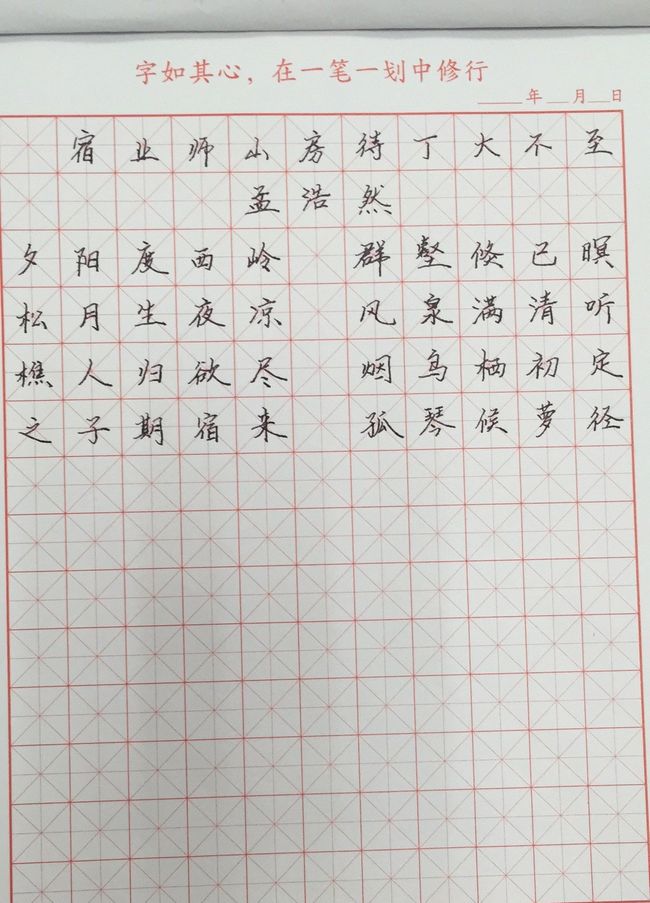 字如其心，在一笔一划中修行
年 月 日
宿业师山房待丁大不至
孟浩然
夕阳度西岭 群壑倏已暝
松月生夜凉 风泉满清听
樵人归欲尽 烟鸟栖初定
之子期宿来 孤琴候萝径